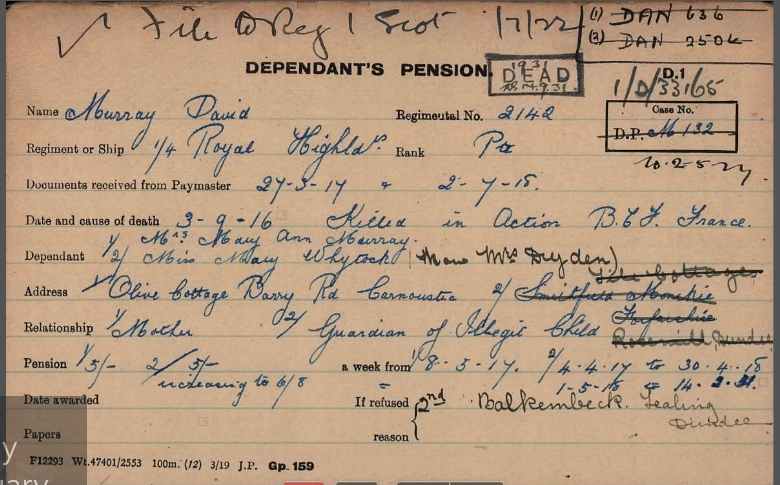 File to Reg 1 Scot 1/7/22
(1) DAN 636
(2) DAN 2504
DEPENDANT'S PENSION.
1931
DEAD
14.9.31.
D.1
1/D/33165
Name Murray David Regimental No. 2142
Case No.
D.P. M 132
10.2.5.27
Regiment or Ship 1/4 Royal Highldrs. Rank Pte
Documents received from Paymaster 27-3-17 & 2-7-18.
Date and cause of death 3-9-16 Killed in Action B.E.F. France.
1/ Mrs Mary Ann Murray.
Dependant 2/ Miss Mary Whytock (Now Mrs Dryden)
Tile Cottages
Address 1/ Olive Cottage Barry Rd Carnoustie 2/ Smithfield Monikie
Forfarshire
Relationship 1/ Mother 2/ Guardian of Illegit Child Rosemill, Dundee
Pension 1/ 5/- 2/ 5/- a week from 1/ 8-5-17. 2/ 4.4.17 to 30.4.18
increasing to 6/8 = 1-5-18 to 14.3.31.
Date awarded If refused 2nd Balkembeck. Tealing
Dundee
Papers reason
F12293 Wt.47401/2553 100m. (12) 3/19 J.P. Gp.159